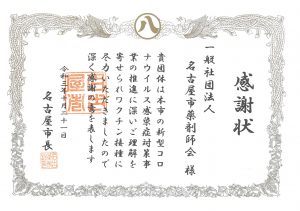 八
感謝状
一般社団法人
名古屋市薬剤師会 様
貴団体は本市の新型コロ
ナウイルス感染症対策事
業の推進に深いご理解を
寄せられワクチン接種に
尽力いただきましたので
深く感謝の意を表します
令和三年十月二十一日
名古屋市長